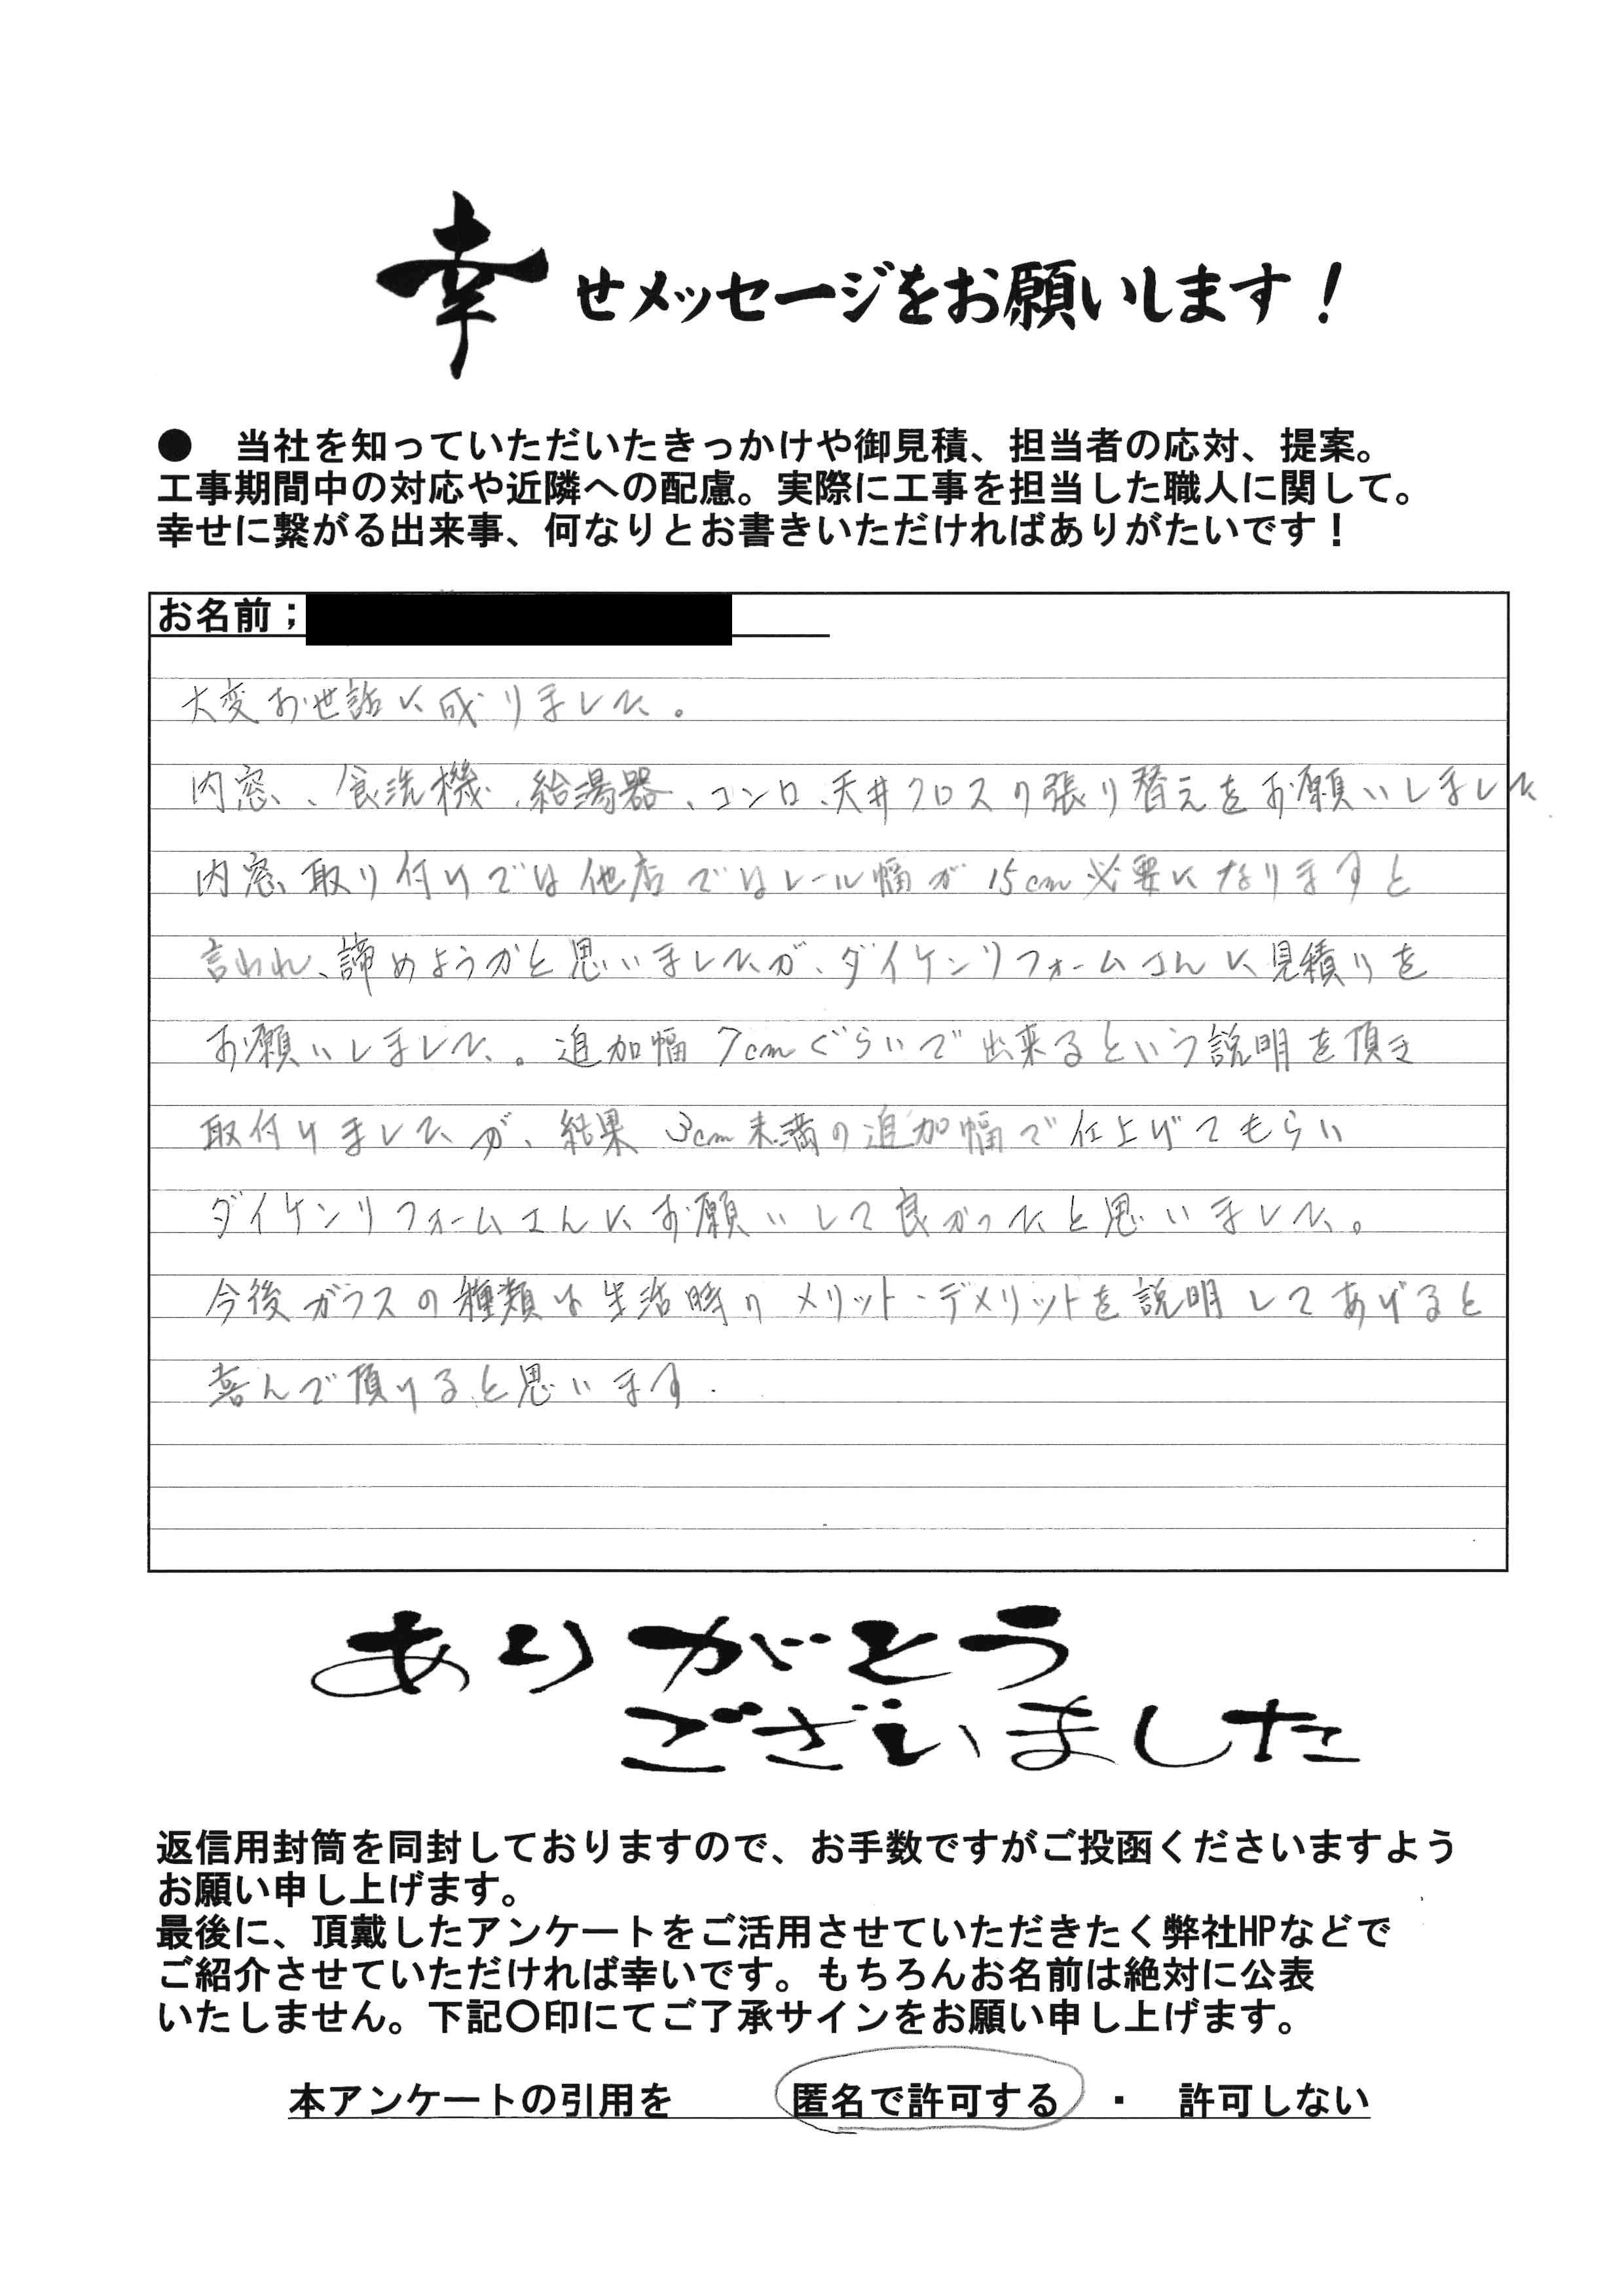 幸せメッセージをお願いします!
● 当社を知っていただいたきっかけや御見積、担当者の応対、提案。
工事期間中の対応や近隣への配慮。実際に工事を担当した職人に関して。
幸せに繋がる出来事、何なりとお書きいただければありがたいです!
お名前;
大変お世話に成りました。
内窓、食洗機、給湯器、コンロ、天井クロスの張り替えをお願いしました
内窓取り付けでは他店ではレール幅が15cm必要になりますと
言われ、諦めようかと思いましたが、ダイケンリフォームさんに見積りを
お願いしました。追加幅7cmぐらいで出来るという説明を頂き
取付けましたが、結果3cm未満の追加幅で仕上げてもらい
ダイケンリフォームさんにお願いして良かったと思いました。
今後ガラスの種類は生活時のメリット・デメリットを説明してあげると
喜んで頂けると思います.
ありがとう
ございました
返信用封筒を同封しておりますので、お手数ですがご投函くださいますよう
お願い申し上げます。
最後に、頂戴したアンケートをご活用させていただきたく弊社HPなどで
ご紹介させていただければ幸いです。もちろんお名前は絶対に公表
いたしません。下記〇印にてご了承サインをお願い申し上げます。
本アンケートの引用を 匿名で許可する ・ 許可しない